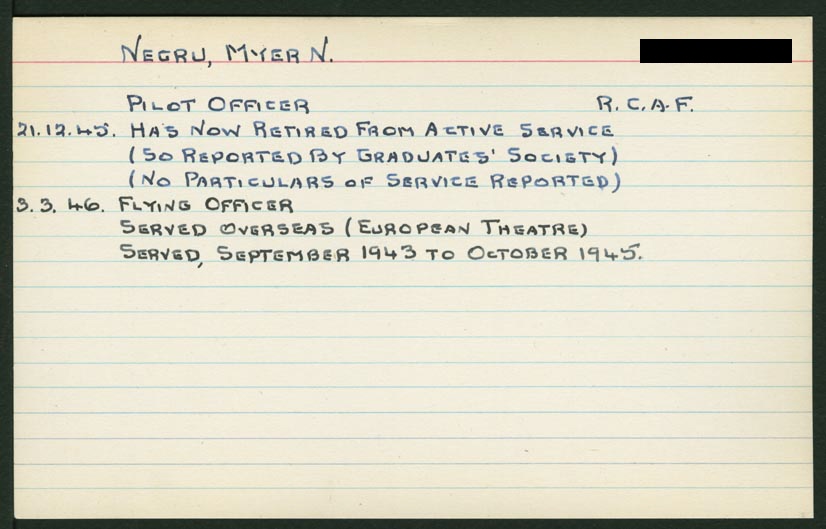 NEGRU, MYER N.
PILOT OFFICER R.C.A.F.
21.12.45. HAS NOW RETIRED FROM ACTIVE SERVICE
(SO REPORTED BY GRADUATES' SOCIETY)
(NO PARTICULARS OF SERVICE REPORTED)
3.3.46. FLYING OFFICER
SERVED OVERSEAS (EUROPEAN THEATRE)
SERVED, SEPTEMBER 1943 TO OCTOBER 1945.